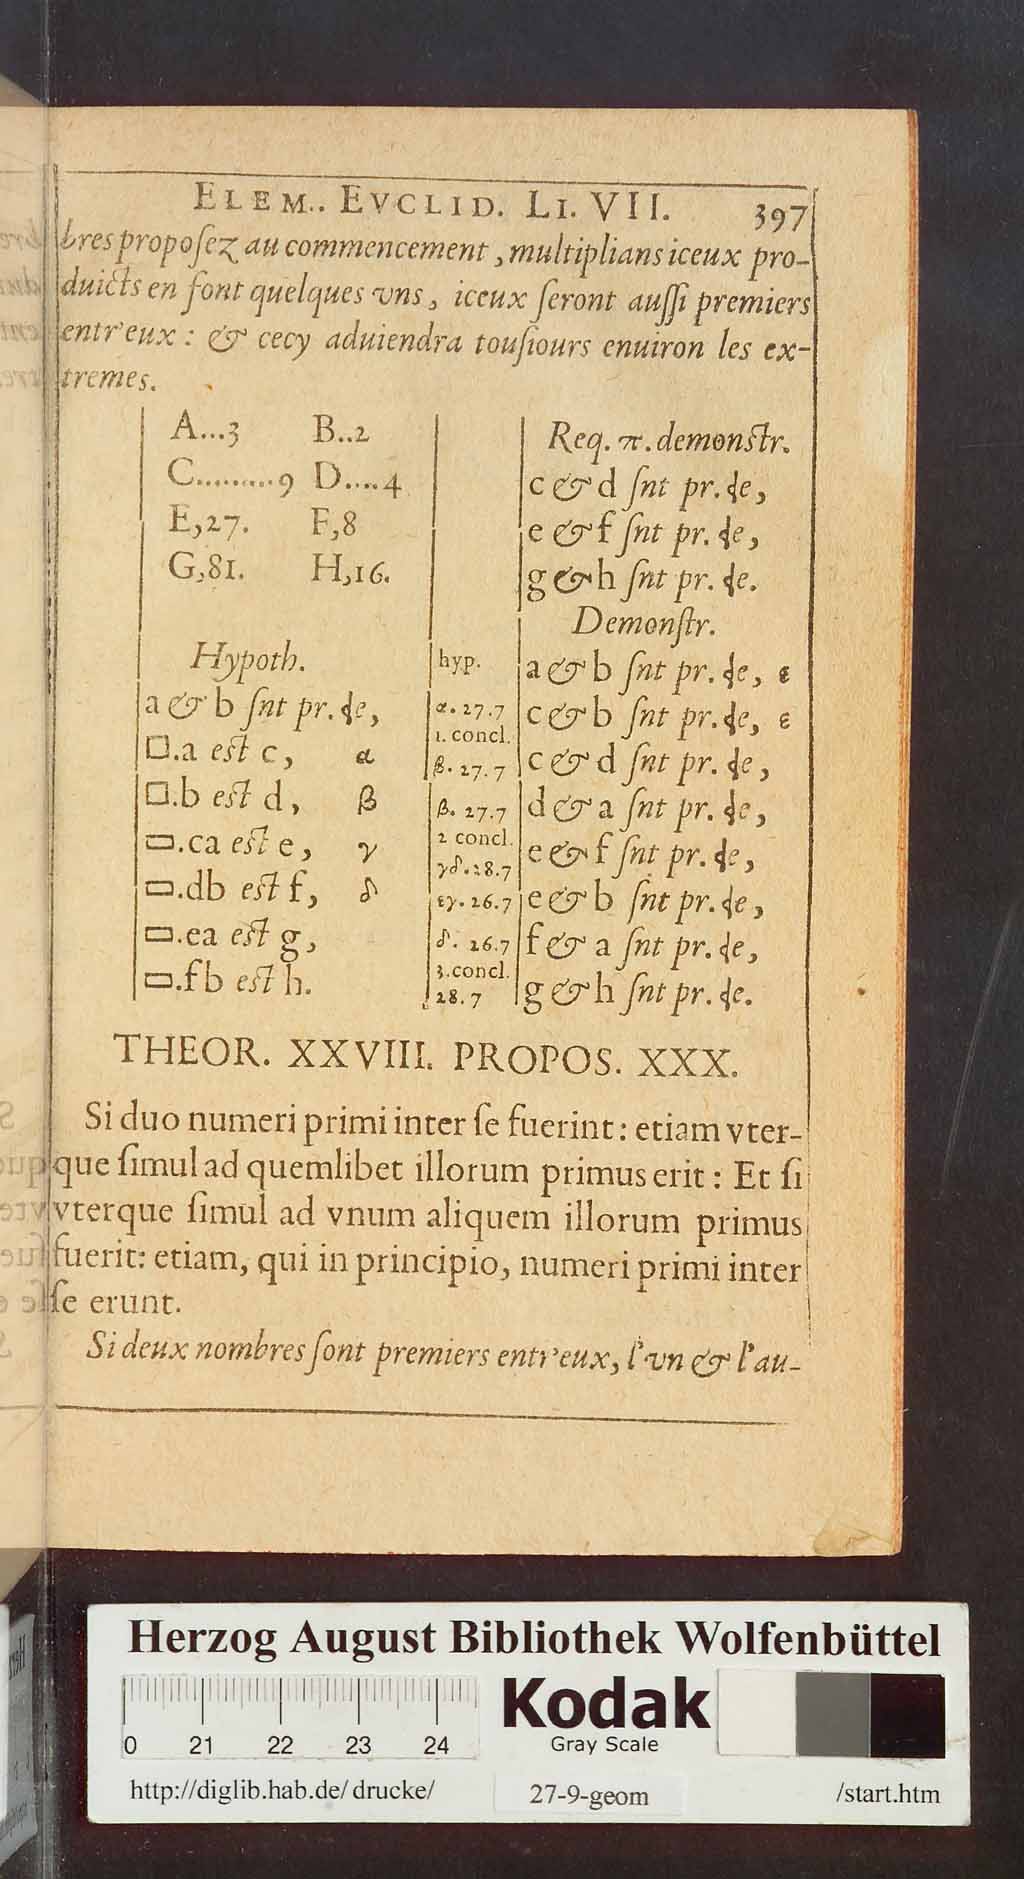 ELEM.. EVCLID. LI. VII. 397
bres proposez au commencement, multiplians iceux pro-
duicts en font quelques vns, iceux seront aussi premiers
entr'eux : & cecy aduiendra tousiours enuiron les ex-
tremes.
A...3 B..2
C.........9 D....4
E,27. F,8
G,81. H,16.
Hypoth.
a & b snt pr. ꝗe,
□.a est c, α
□.b est d, β
▭.ca est e, γ
▭.db est f, δ
▭.ea est g,
▭.fb est h.
Req. π. demonstr.
c & d snt pr. ꝗe,
e & f snt pr. ꝗe,
g & h snt pr. ꝗe.
Demonstr.
hyp. a & b snt pr. ꝗe, ε
α. 27.7 c & b snt pr. ꝗe, ε
1. concl.
β. 27.7 c & d snt pr. ꝗe,
β. 27.7 d & a snt pr. ꝗe,
2 concl.
γδ. 28.7 e & f snt pr. ꝗe,
εγ. 26.7 e & b snt pr. ꝗe,
δ. 26.7 f & a snt pr. ꝗe,
3. concl.
28.7 g & h snt pr. ꝗe.
THEOR. XXVIII. PROPOS. XXX.
Si duo numeri primi inter se fuerint: etiam vter-
que simul ad quemlibet illorum primus erit : Et si
vterque simul ad vnum aliquem illorum primus
fuerit: etiam, qui in principio, numeri primi inter
se erunt.
Si deux nombres sont premiers entr'eux, l'vn & l'au-
Herzog August Bibliothek Wolfenbüttel
0 21 22 23 24
Kodak
Gray Scale
http://diglib.hab.de/ drucke/ 27-9-geom /start.htm